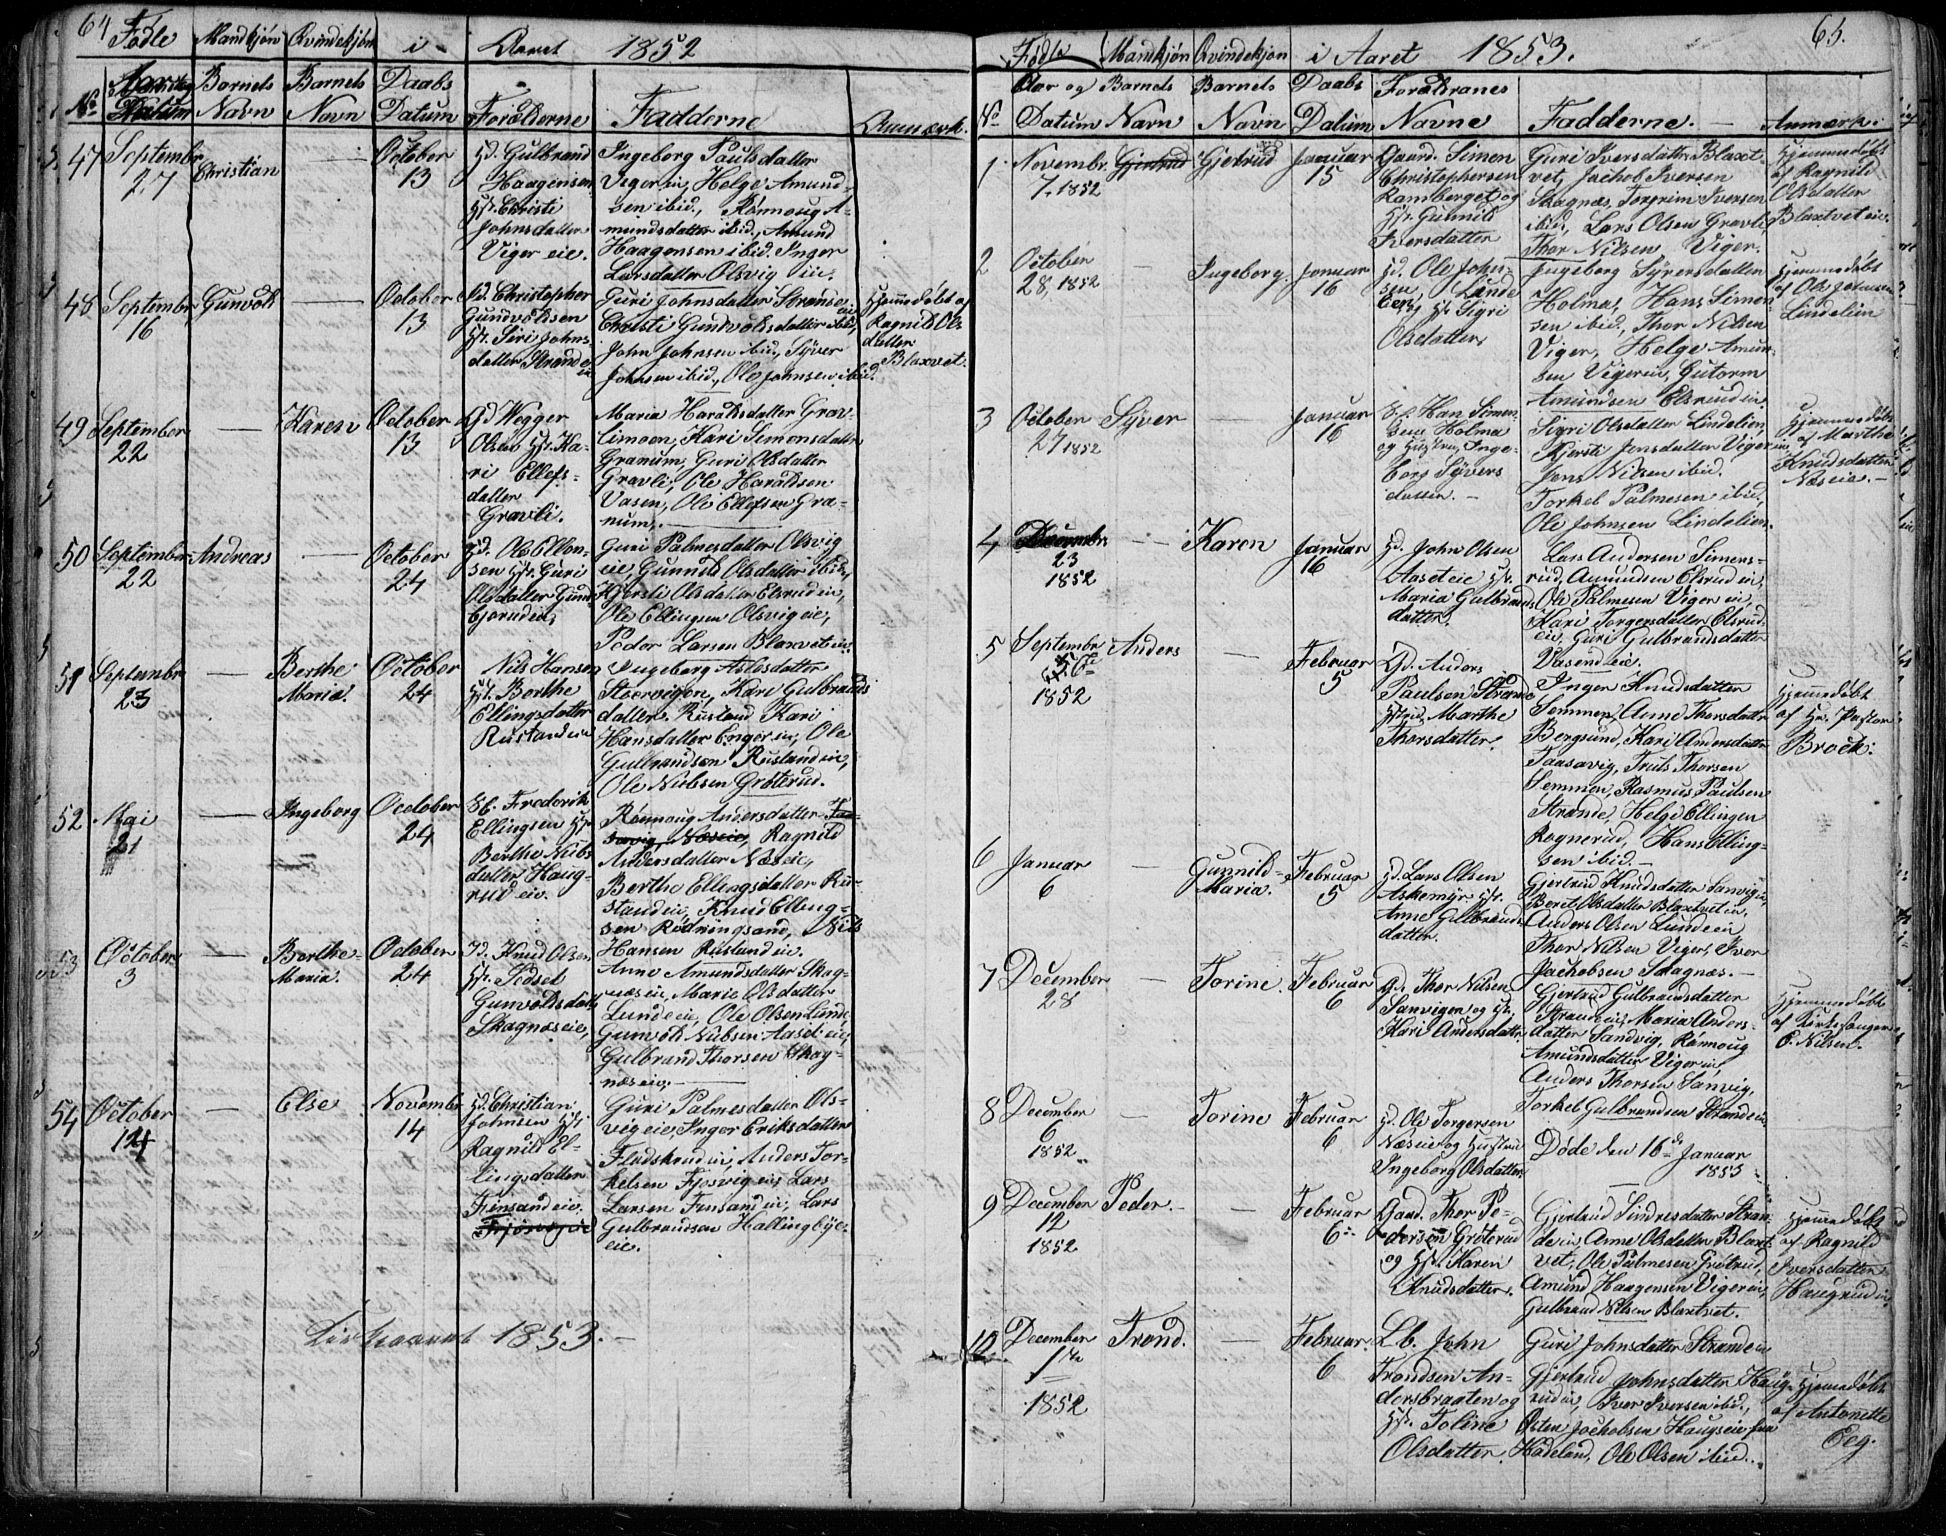 64
Fødte Mandkjøn Qvindekjøn i Aaret 1852
No Datum Barnets Navn Barnets Navn Daabs Datum Forælderne Fadderne Anmærk.
47 Septembr 27 Christian — October 13
Gd. Gulbrand
Haagensen
Hst. Christi
Johnsdatter
Viger eie.
Ingeborg Paulsdatter
Viger ein, Helge Amund-
sen ibid., Rønnoug A-
mundsdatter ibid., Amund
Haagensen ibid. Inger
Larsdatter Olsvig ein.
48 Septembr 16 Gunvold — October 13
Id. Christopher
Gundvoldsen
Hst. Siri Johns-
datter Strande
ein
Guri Johnsdatter Strande
ein
Christi Gundvoldsdatter ibid,
John Johnsen ibid, Syver
Johnsen ibid., Ole Johnsen ibid.
Hjemmedøbt af
Ragnild Ols
datter
Blaxvet.
49 September 22 — Karen October 13
Gd Wegger
Olsen Hst. Ka-
ri Ellefs-
datter
Gravli.
Maria Haraldsdatter Grav-
limoen, Kari Simonsdatter
Granum, Guri Olsdatter
Gravli, Ole Haraldsen
Vasen, Ole Ellefsen Gra-
num.
50 September 22 Andreas — October 24
Id. Ole Ellen-
sen Hst. Guri
Olsdatter Gund-
bjørudein,
Guri Palmesdatter Olsvig
eie, Gunnild Olsdatter ibid,
Kjersti Olsdatter Elsrud ein,
Ole Ellingsen Olsvig eie,
Peder Larsen Blaxvet ein.
51 Septembr 23 — Berthe Maria. October 24
Nils Hansen
Hst. Berthe
Ellingsdatter
Rustand ein
Ingeborg Aslesdatter
Storvigen, Kari Gulbrands
datter Rustand Kari
Hansdatter Enger ein, Ole
Gulbrandsen Rustand ein,
Ole Nielsen Grøterud.
52 Mai 21 — Ingeborg October 24
Frederik
Ellingsen Hst
Berthe Niels
datter Haug-
rud eie.
Rønnoug Andersdatter Taa-
savig, Næseie, Ragnild
Andersdatter Næseie,
Berthe Ellingsdatter Ru-
stand ein, Knud Elling-
sen Rødningsand, Nils
Hansen Rustand ein.
53 October 3 — Berthe- Maria. October 24
Id. Knud Olsen
Hst. Sedsel
Gunvoldsdatt
Skagnæs eie,
Anne Amundsdatter Skag-
næs eie, Marie Olsdatter
Lunde eie, Ole Olsen Lunde,
Gunvold Nielsen Aaset eie,
Gulbrand Thorsen Skag-
næs eie.
54 October 14 — Else November 14
Id. Christian
Johnsen Hst
Ragnild El-
lingsdatter
Finsand eie.
Fjøsvigeie
Guri Palmesdatter Ols-
vig eie, Inger Eriksdatter
Fledskrud ein, Anders Tor-
kelsen Fjøsvig ein, Lars
Larsen Finsand ein, Lars
Gulbrandsen Hallingbye-
eie.
Kirkeaaret 1853.
65.
Fødte Mandkjøn Qvindekjøn i Aaret 1853.
No Aar og Datum Barnets Navn Barnets Navn Daabs Datum Forældranes Navne Fadderne. Anmærk:
1 Novembr. 7. 1852 Gjertrud Gjertrud Januar 15
Gaard. Simon
Christophersen
Ramberget og
Hst. Gunnild
Iversdatter
Guri Iversdatter Blaxt-
vet, Jachob Iversen
Skagnæs, Torgrim Iversen
ibid, Lars Olsen Gravli,
Thor Nilsen Viger.
Hjemmedøbt
af Ragnild
Olsdatter
Blaxtvet eie.
2 October 28, 1852 — Ingeborg. Januar 16
Id. Ole John-
sen, Linde
lien, Hst Sigri
Olsdatter,
Ingeborg Syversdatter
Holma, Hans Simon-
sen ibid, Thor Nilsen
Viger, Helge Amun-
sen Viger ein, Gutorm
Amundsen Elsrud ein
Hjemmedøbt
af Ole Johnsen
Lindelien
3 October 27 1852 Syver — Januar 16
Han Simon-
sen Holma
og Hustru Inge-
borg Syvers
datter. —
Sigri Olsdatter Lindelien
Kjersti Jensdatter Viger
Jens Nilsen ibid.
Torkel Palmesen ibid.
Ole Johnsen Lindelien.
Hjemmedøbt
af Marthe
Knudsdatter
Næs eie. —
4 Decembr 23 1852 — Karen Januar 16
Id. John Olsen
Aaset eie Hst.
Maria Gulbrands
datter.
Lars Andersen Simens-
rud, Amundsen Elsrud ein,
Ole Palmesen Viger ein,
Kari Torgersdatter Elsrud-
ein, Guri Gulbrandsdatter
Vasend eie.
5 Septembr 1852 Anders — Februar 5
Gd. Anders
Paulsen Strande
Hstru, Marthe
Thorsdatter.
Inger Knudsdatter
Semmen, Anne Thorsdatter
Bergsund, Kari Andersdatter
Taasavig, Truls Thorsen
Semmen, Rasmus Paulsen
Strande, Helge Ellingen
Rognerud, Hans Elling-
sen ibid. —
Hjemmedøbt
af Hr. Pastor
Brock.
6 Januar 6 — Gunnild- Maria. Februar 5
Id. Lars Olsen
Askemyr Hst.
Anne Gulbrands
datter.
Gjertrud Knudsdatter Sanvig,
Beret Olsdatter Blaxtvet ein.
Anders Olsen Lunde ein
Thor Nilsen Viger, Iver
Jachobsen Skagnæs. —
7 December 28 — Torine Februar 6
Gd. Thor Nilsen
Sanvigen og Hst.
Kari Andersdatter
Gjertrud Gulbrandsdatter
Strande ein, Maria Anders-
datter Sandvig, Rønnoug
Amundsdatter Viger ein,
Anders Thorsen Sanvig,
Torkel Gulbrandsen Strande ein
Hjemmedøbt
af Kirkesanger
O. Nilsen.
8 December 6 1852 — Torine Februar 6
Id. Ole Torgersen
Næseie og Hustru
Ingeborg Olsdatter.
Døde den 16de Januar
1853
9 December 12 1852 Peder. — Februar 6
Gaard. Thor Pe-
dersen Grøterud
og Hst. Karen
Knudsdatter.
Gjertrud Sindresdatter Stran-
de ein Anne Olsdatter Blaxt-
vet, Ole Palmesen Grøtrud,
Amund Haagensen Viger ein,
Gulbrand Nilsen Blaxtvet.
Hjemmedøbt
af Ragnild
Iversdatter
Haugrud ein.
10 December 1852 Trond. — Februar. 6
Lb. John
Trondsen An-
dersbraaten og
Hst. Toline
Olsdatter.
Guri Johnsdatter Strande ein
Gjertrud Johnsdatter Haug-
rud ein, Iver Iversen ibid.,
Østen Jachobsen Haugseie fra
Hadeland, Ole Olsen ibid..
Hjemmedøbt
af Antonette
Eeg.